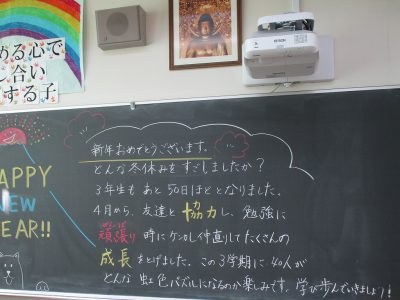 める心で
じ合い
する子
EPSON
HAPPY
NEW
YEAR!!
新年おめでとうございます。
どんな冬休みをすごしましたか？
3年生もあと50日ほどとなりました。
4月から、友達と協力し、勉強に
頑張り時にケンカし仲直りしてたくさんの
成長をとげました。この3学期に40人が
どんな虹色パズルになるのか楽しみです。学び歩んでいきましょう!